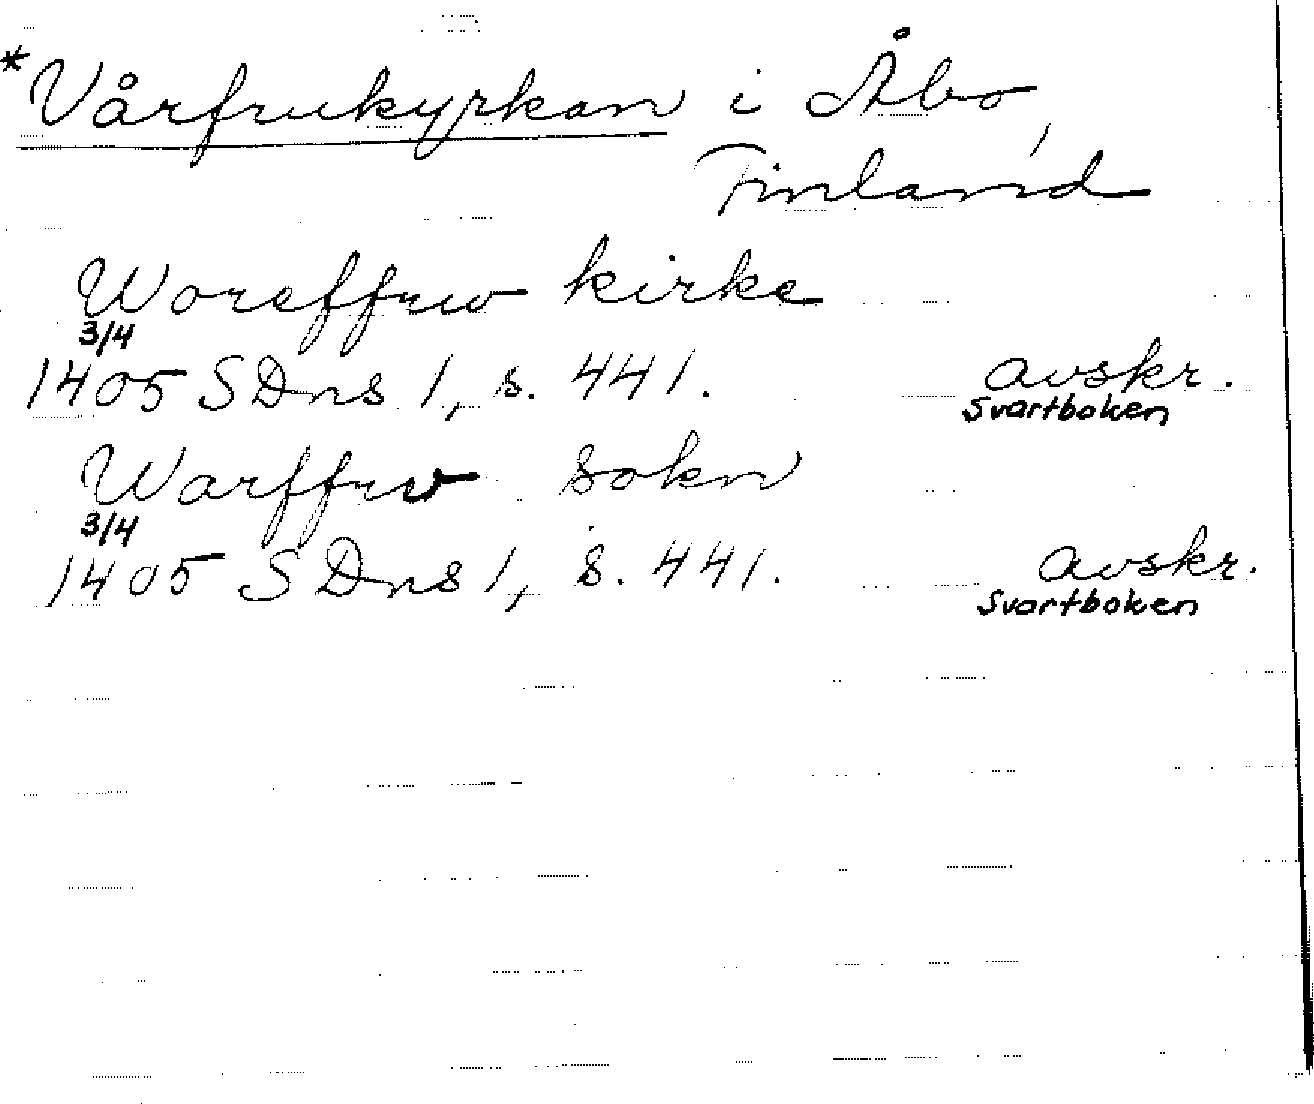 *Vårfrukyrkan i Åbo,
Finland
Woreffrw kirke
3/4
1405 SDns 1, s. 441. avskr.
Svartboken
Warffrv sokn
3/4
1405 SDns 1, s. 441. avskr.
Svartboken